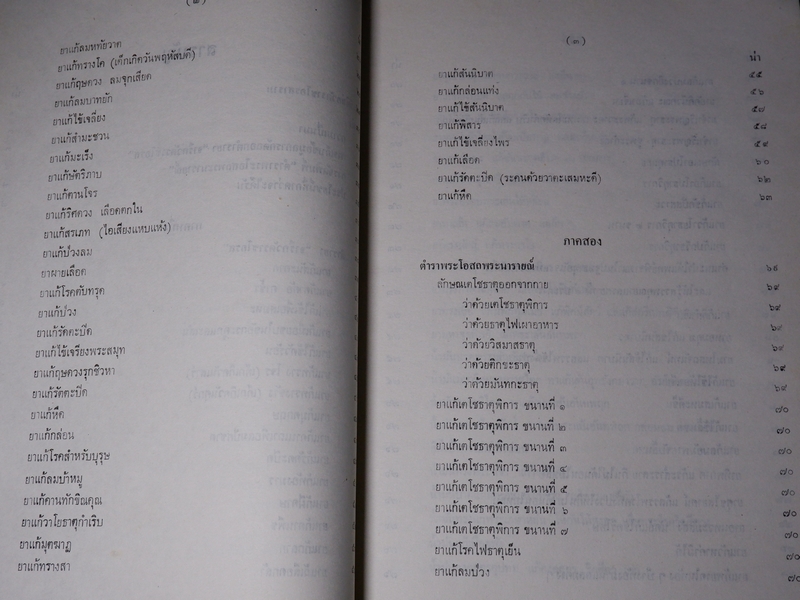 (๒)
ยาแก้ลมหทัยวาต
ยาแก้ทรางโค (เด็กเกิดวันพฤหัสบดี)
ยาแก้ฤษดวง ลมจุกเสียด
ยาแก้ลมบาทยัก
ยาแก้ไข้เฉลี่ยง
ยาแก้สำมะชวน
ยาแก้มะเร็ง
ยาแก้ษัตริภาบ
ยาแก้ดานโจร
ยาแก้ริศดวง เลือดตกใน
ยาแก้สรเภท (ไอเสียงแหบแห้ง)
ยาแก้ป่วงลม
ยาผายเลือด
ยาแก้โรคตับทรุด
ยาแก้ป่วง
ยาแก้รัตตะปิต
ยาแก้ไข้เจรียงพระสมุท
ยาแก้ฤษดวงรุกชิวหา
ยาแก้รัตตะปิต
ยาแก้หืด
ยาแก้กล่อน
ยาแก้โรคสำหรับบุรุษ
ยาแก้ลมบ้าหมู
ยาแก้ดานทักขิณคุณ
ยาแก้วาโยธาตุกำเริบ
ยาแก้มุตฆาฏ
ยาแก้ทรางสา
(๓)
น่า
ยาแก้สันนิบาต ๕๕
ยาแก้กล่อนแห่ง ๕๖
ยาแก้ไข้สันนิบาต ๕๗
ยาแก้พิสาร ๕๘
ยาแก้ไข้เฉลี่ยงไพร ๕๙
ยาแก้เลือด ๖๐
ยาแก้รัตตะปิต (ระคนด้วยวาตะเสมหะดี) ๖๒
ยาแก้หืด ๖๓
ภาคสอง
ตำราพระโอสถพระนารายณ์ ๖๙
ลักษณเตโชธาตุออกจากกาย ๖๙
ว่าด้วยเตโชธาตุพิการ ๖๙
ว่าด้วยธาตุไฟเผาอาหาร ๖๙
ว่าด้วยวิสมาสธาตุ ๖๙
ว่าด้วยติกขะธาตุ ๖๙
ว่าด้วยมันทกะธาตุ ๖๙
ยาแก้เตโชธาตุพิการ ขนานที่ ๑ ๗๐
ยาแก้เตโชธาตุพิการ ขนานที่ ๒ ๗๐
ยาแก้เตโชธาตุพิการ ขนานที่ ๓ ๗๐
ยาแก้เตโชธาตุพิการ ขนานที่ ๔ ๗๐
ยาแก้เตโชธาตุพิการ ขนานที่ ๕ ๗๐
ยาแก้เตโชธาตุพิการ ขนานที่ ๖ ๗๐
ยาแก้เตโชธาตุพิการ ขนานที่ ๗ ๗๐
ยาแก้โรคไฟธาตุเย็น ๗๐
ยาแก้ลมป่วง ๗๐